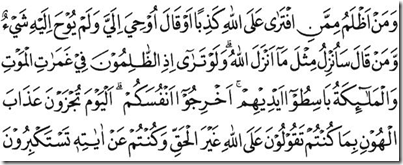 وَمَنْ اَظْلَمُ مِمَّنِ افْتَرٰى عَلَى اللّٰهِ كَذِبًا اَوْ قَالَ اُوْحِيَ اِلَيَّ وَلَمْ يُوْحَ اِلَيْهِ شَيْءٌ
وَّمَنْ قَالَ سَاُنْزِلُ مِثْلَ مَآ اَنْزَلَ اللّٰهُ ۗ وَلَوْ تَرٰٓى اِذِ الظّٰلِمُوْنَ فِيْ غَمَرٰتِ الْمَوْتِ
وَالْمَلٰۤىِٕكَةُ بَاسِطُوْٓا اَيْدِيْهِمْ ۚ اَخْرِجُوْٓا اَنْفُسَكُمْ ۗ اَلْيَوْمَ تُجْزَوْنَ عَذَابَ
الْهُوْنِ بِمَا كُنْتُمْ تَقُوْلُوْنَ عَلَى اللّٰهِ غَيْرَ الْحَقِّ وَكُنْتُمْ عَنْ اٰيٰتِهٖ تَسْتَكْبِرُوْنَ